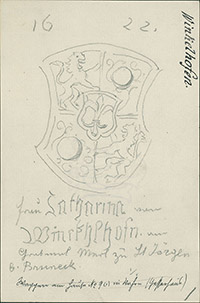 16 22.
Winkelhofen
Frau Catharina von
Winckhlhofn. an
Grabmal Mört zu St Jörgen
b. Bruneck
Wappen am Hause № 90 in